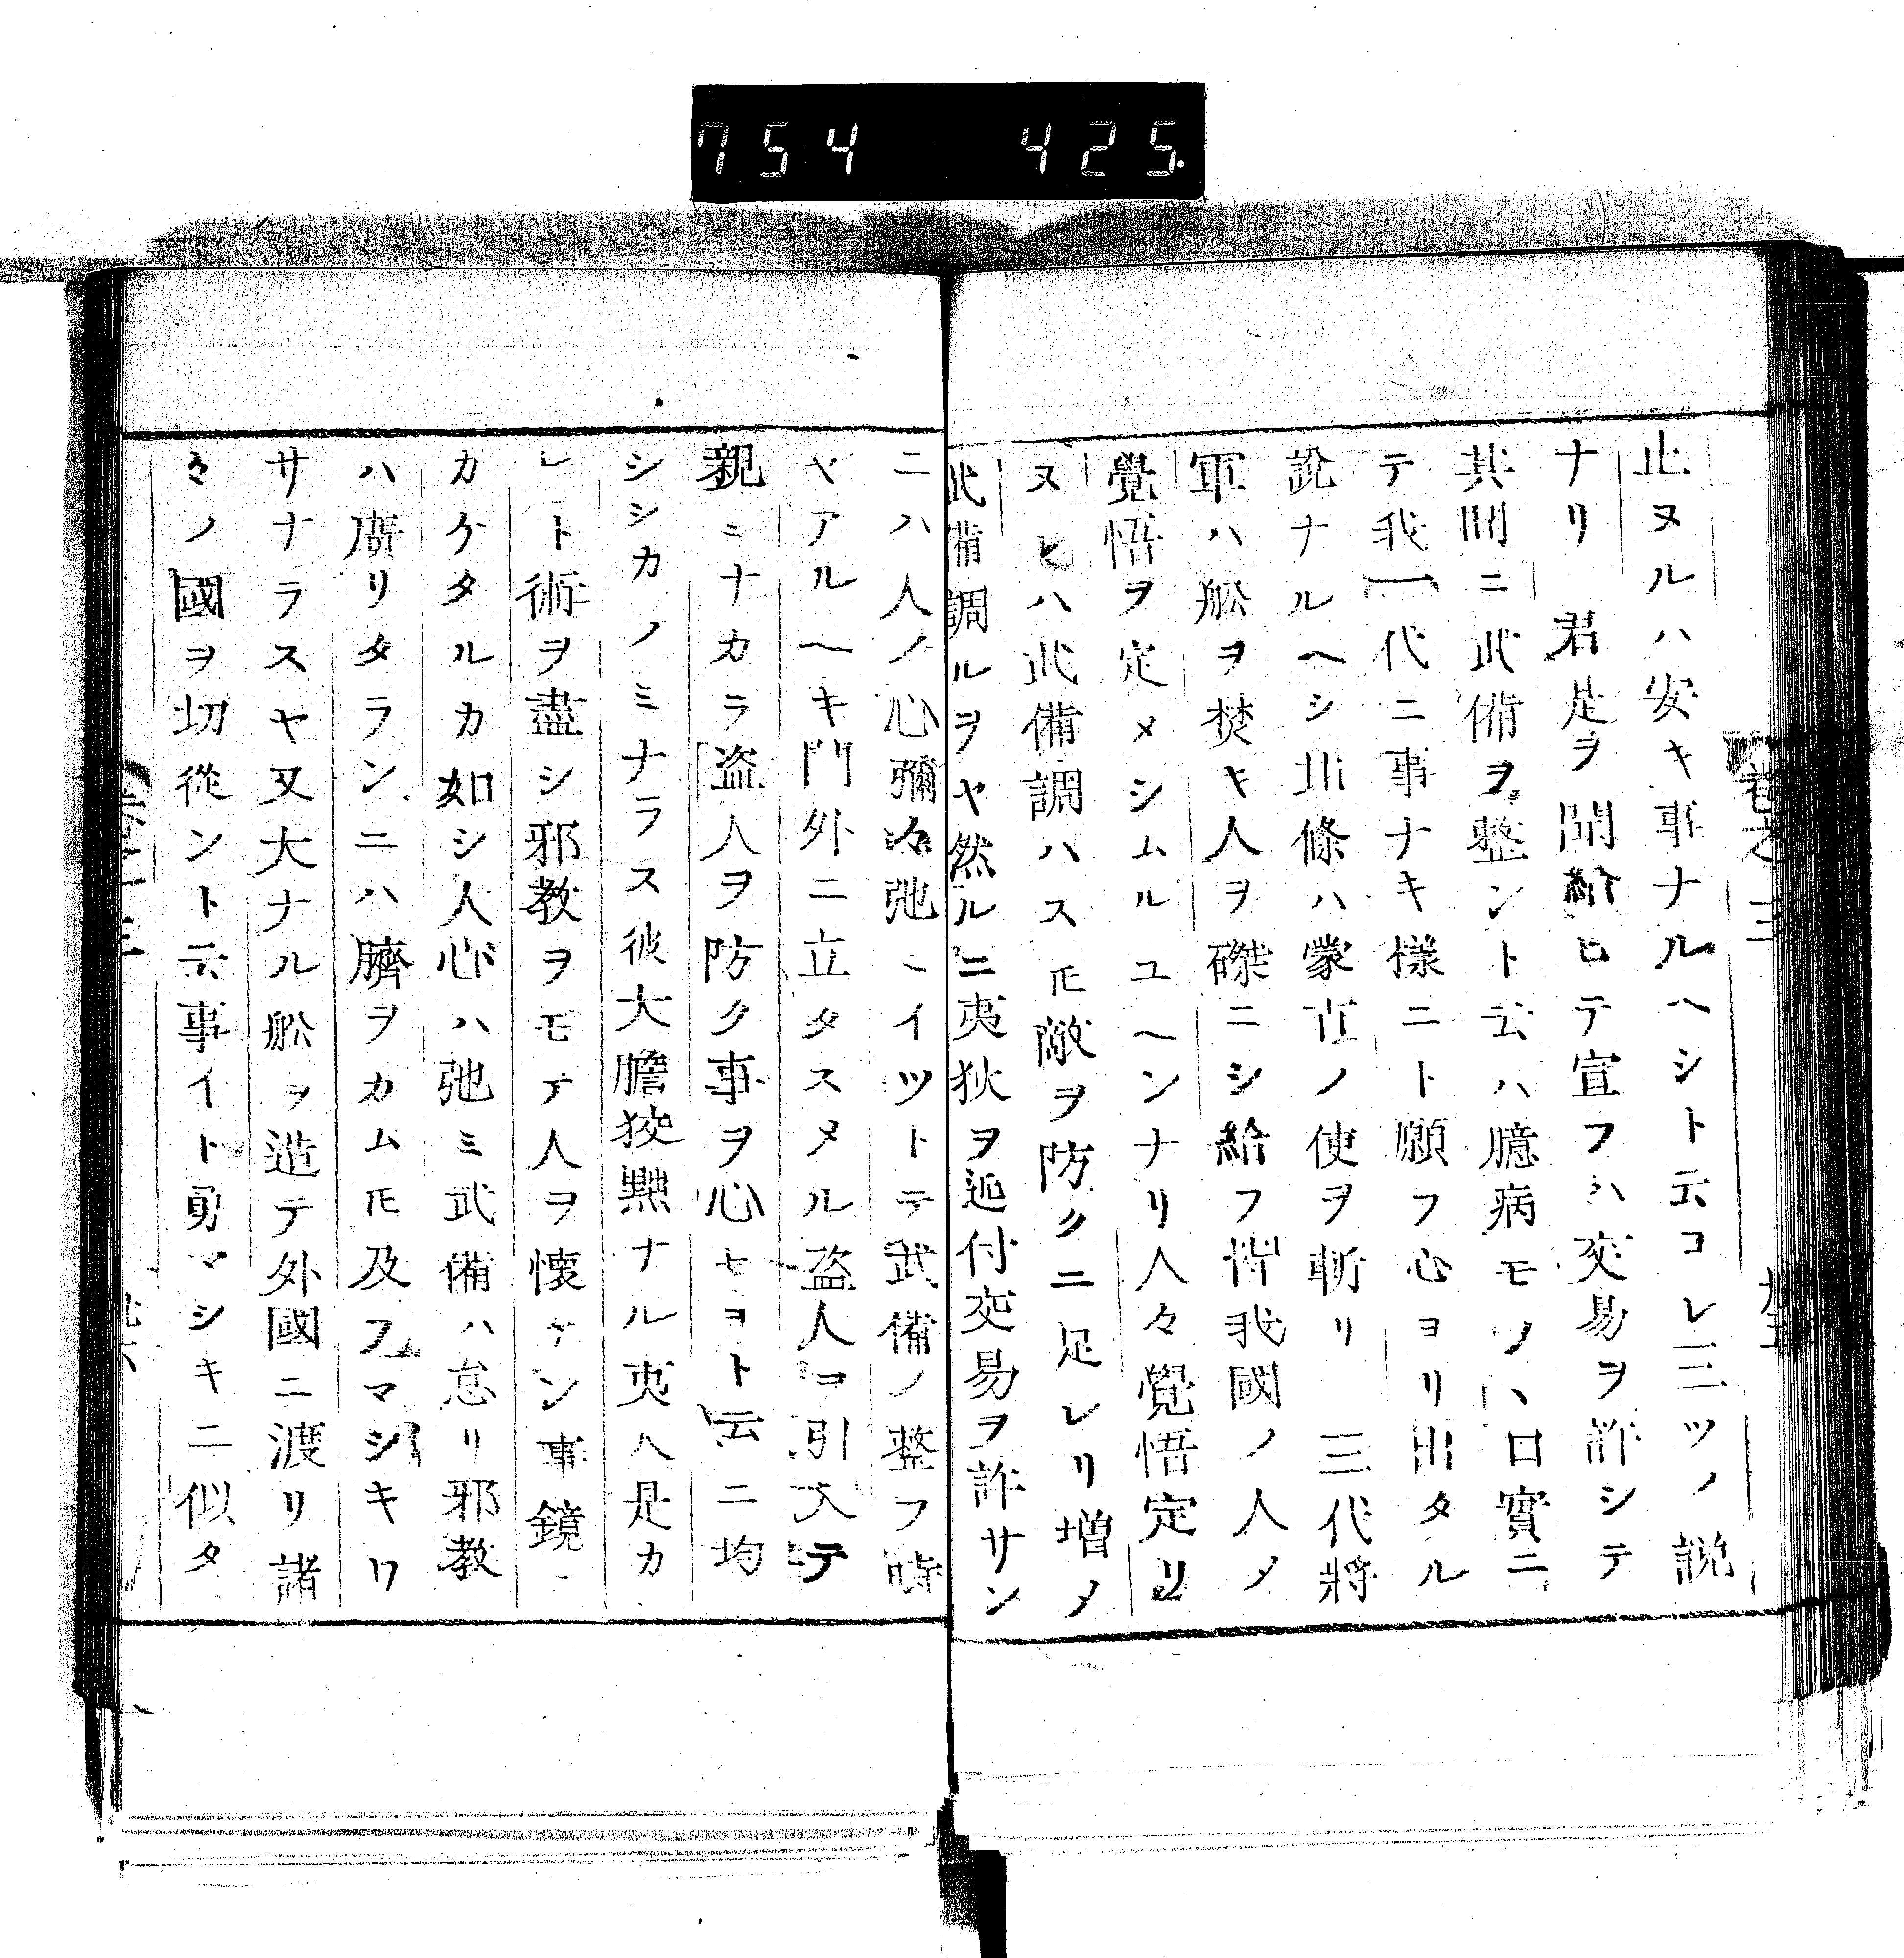 754 425
卷之三
止ヌルハ安キ事ナルヘシト云コレ三ツノ説
ナリ 君是ヲ聞給ヒテ宣フハ交易ヲ許シテ
其間ニ武備ヲ整ント云ハ臆病モノヽ口實ニ
テ我一代ニ事ナキ樣ニト願フ心ヨリ出タル
說ナルヘシ北條ハ蒙古ノ使ヲ斬リ 三代將
軍ハ舩ヲ焚キ人ヲ磔ニシ給フ皆我國ノ人メ
覺悟ヲ定メシムルユヘンナリ人々覺悟定リ
ヌヒハ武備調ハス𪜈敵ヲ防クニ足レリ増メ
武備調ルヲヤ然ルニ夷狄ヲ近付交易ヲ許サン
ニハ人ノ心彌々弛ニイツトテ武備ノ整フ時
ヤアルヘキ門外ニ立タスメル盗人ヲ引入テ
親ミナカラ盗人ヲ防ク事ヲ心セヨト云ニ均
シシカノミナラス彼大膽狡黠ナル夷人是カ
レト術ヲ盡シ邪教ヲモテ人ヲ懷ケン事鏡ニ
カケタルカ如シ人心ハ弛ミ武備ハ怠リ邪教
ハ廣リタランニハ臍ヲカム𪜈及フマシキワ
サナラスヤ又大ナル舩ヲ造テ外國ニ渡リ諸
々ノ國ヲ切從ント云事イト勇マシキニ似タ